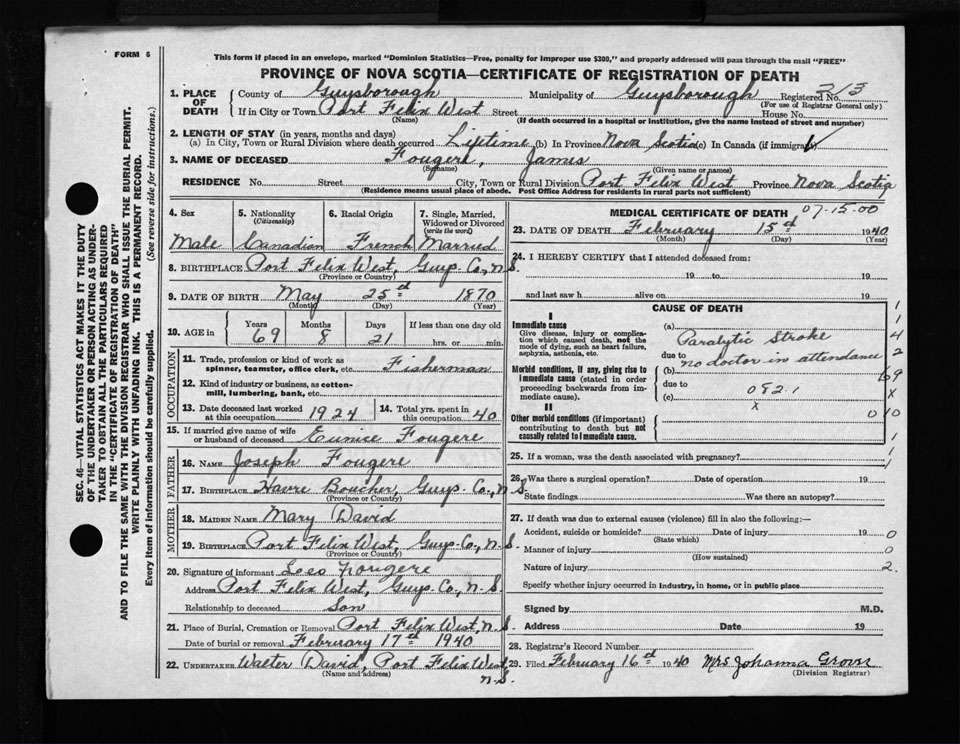 FORM 6
This form if placed in an envelope, marked "Dominion Statistics—Free, penalty for improper use $300," and properly addressed will pass through the mail "FREE"
PROVINCE OF NOVA SCOTIA—CERTIFICATE OF REGISTRATION OF DEATH
SEC. 46—VITAL STATISTICS ACT MAKES IT THE DUTY
OF THE UNDERTAKER OR PERSON ACTING AS UNDER-
TAKER TO OBTAIN ALL THE PARTICULARS REQUIRED
IN THE "CERTIFICATE OF REGISTRATION OF DEATH"
AND TO FILE THE SAME WITH THE DIVISION REGISTRAR WHO SHALL ISSUE THE BURIAL PERMIT.
WRITE PLAINLY WITH UNFADING INK. THIS IS A PERMANENT RECORD.
Every item of information should be carefully supplied. (See reverse side for instructions.)
1. PLACE OF DEATH County of Guysborough Municipality of Guysborough Registered No. 213
(For use of Registrar General only)
If in City or Town Port Felix West Street House No.
(Name) (If death occurred in a hospital or institution, give the name instead of street and number)
2. LENGTH OF STAY (in years, months and days)
(a) In City, Town or Rural Division where death occurred Liptime (b) In Province Nova Scotia (c) In Canada (if immigrant)
3. NAME OF DECEASED Fougere, James
(Surname) (Given name or names)
RESIDENCE No. Street City, Town or Rural Division Port Felix West Province Nova Scotia
(Residence means usual place of abode. Post Office Address for residents in rural parts not sufficient)
4. Sex 5. Nationality (Citizenship) 6. Racial Origin 7. Single, Married, Widowed or Divorced (write the word)
Male Canadian French Married
8. BIRTHPLACE Port Felix West, Guys. Co., N.S.
(Province or Country)
9. DATE OF BIRTH May 25th 1870
(Month) (Day) (Year)
10. AGE in Years Months Days If less than one day old
69 8 21 hrs. or min.
OCCUPATION
11. Trade, profession or kind of work as spinner, teamster, office clerk, etc. Fisherman
12. Kind of industry or business, as cotton-mill, lumbering, bank, etc.
13. Date deceased last worked at this occupation 1924 14. Total yrs. spent in this occupation 40
15. If married give name of wife or husband of deceased Eunice Fougere
FATHER
16. NAME Joseph Fougere
17. BIRTHPLACE Havre Boucher, Guys. Co., N.S.
(Province or Country)
MOTHER
18. MAIDEN NAME Mary David
19. BIRTHPLACE Port Felix West, Guys. Co., N.S.
(Province or Country)
20. Signature of informant Leo Fougere
Address Port Felix West, Guys. Co., N.S.
Relationship to deceased Son
21. Place of Burial, Cremation or Removal Port Felix West, N.S.
Date of burial or removal February 17th 1940
22. UNDERTAKER Walter David, Port Felix West, N.S.
(Name and address)
MEDICAL CERTIFICATE OF DEATH 07-15-00
23. DATE OF DEATH February 15th 1940
(Month) (Day) (Year)
24. I HEREBY CERTIFY that I attended deceased from:
19 to 19
and last saw h alive on 19
CAUSE OF DEATH
I
Immediate cause
Give disease, injury or complication which caused death, not the mode of dying, such as heart failure, asphyxia, asthenia, etc.
(a) Paralytic Stroke
due to no doctor in attendance
Morbid conditions, if any, giving rise to immediate cause (stated in order proceeding backwards from immediate cause).
(b)
due to
(c) 082.1
x
II
Other morbid conditions (if important) contributing to death but not causally related to immediate cause.
1
1
4
2
69
x
0 10
1
1
25. If a woman, was the death associated with pregnancy?
26. Was there a surgical operation? Date of operation 19
State findings Was there an autopsy?
27. If death was due to external causes (violence) fill in also the following:—
Accident, suicide or homicide? Date of injury 19 0
(State which)
Manner of injury 0
(How sustained)
Nature of injury 2.
Specify whether injury occurred in industry, in home, or in public place
Signed by M.D.
Address Date 19
28. Registrar's Record Number
29. Filed February 16th 1940 Mrs Johanna
(Division Registrar)